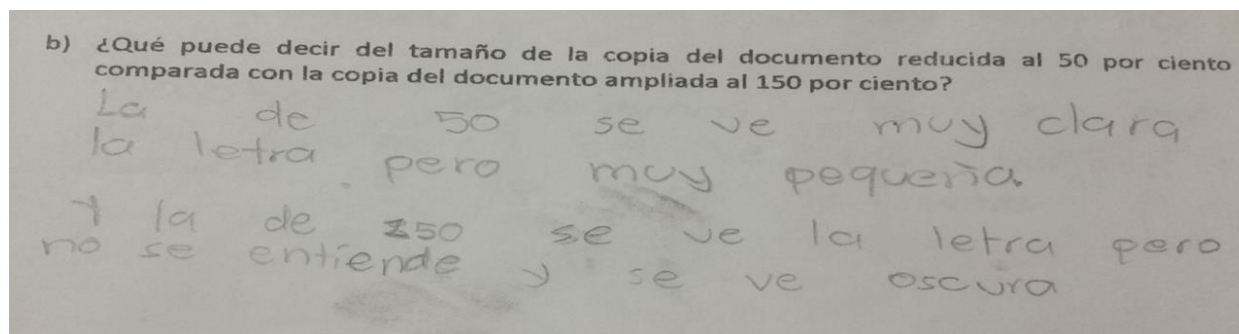 b) ¿Qué puede decir del tamaño de la copia del documento reducida al 50 por ciento
comparada con la copia del documento ampliada al 150 por ciento?
La de 50 se ve muy clara
la letra pero muy pequeña.
Y la de 150 se ve la letra pero
no se entiende y se ve oscura